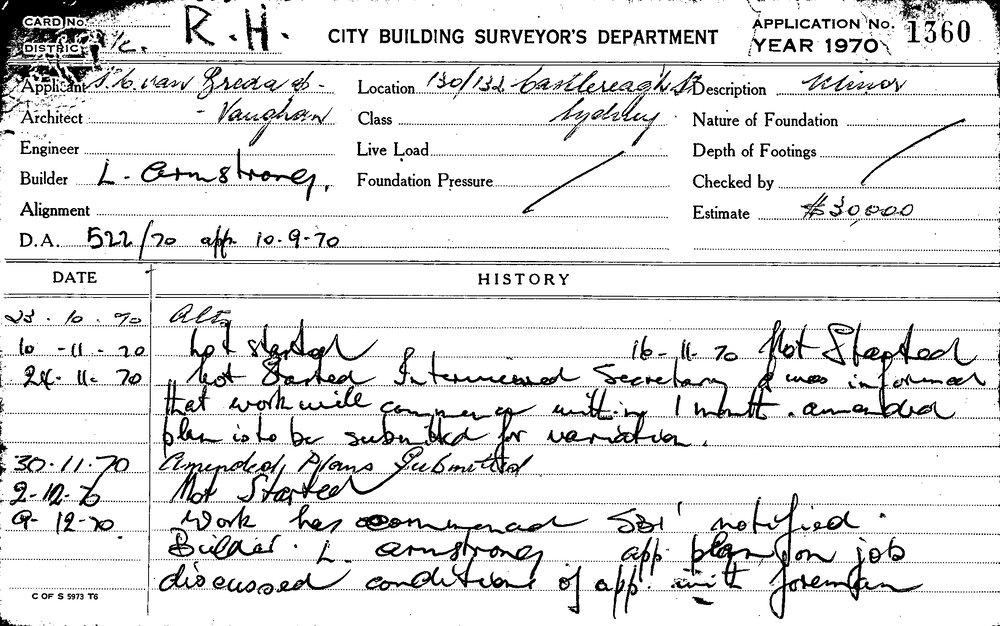 CARD No.
DISTRICT
R.H.
CITY BUILDING SURVEYOR'S DEPARTMENT
APPLICATION No. 1360
YEAR 1970
Applicant van Breda &
Location 130/132 Castlereagh St
Description Minor
Architect - Vaughan
Class Sydney
Nature of Foundation
Engineer
Live Load
Depth of Footings
Builder L. Armstrong.
Foundation Pressure
Checked by
Alignment
Estimate $30,000
D.A. 522/70 app 10.9.70
DATE HISTORY
23.10.70 Alts
10-11-70 not started 16-11-70 Not Started
24-11-70 Not Started Interviewed Secretary & was informed
that work will commence within 1 month. amended
plan is to be submitted for variation.
30.11.70 Amended Plans Submitted
2-12-70 Not Started
9-12-70 Work has commenced SBI notified.
Builder. L. Armstrong app. plan on job
discussed conditions of app. with foreman
C OF S 5973 T6